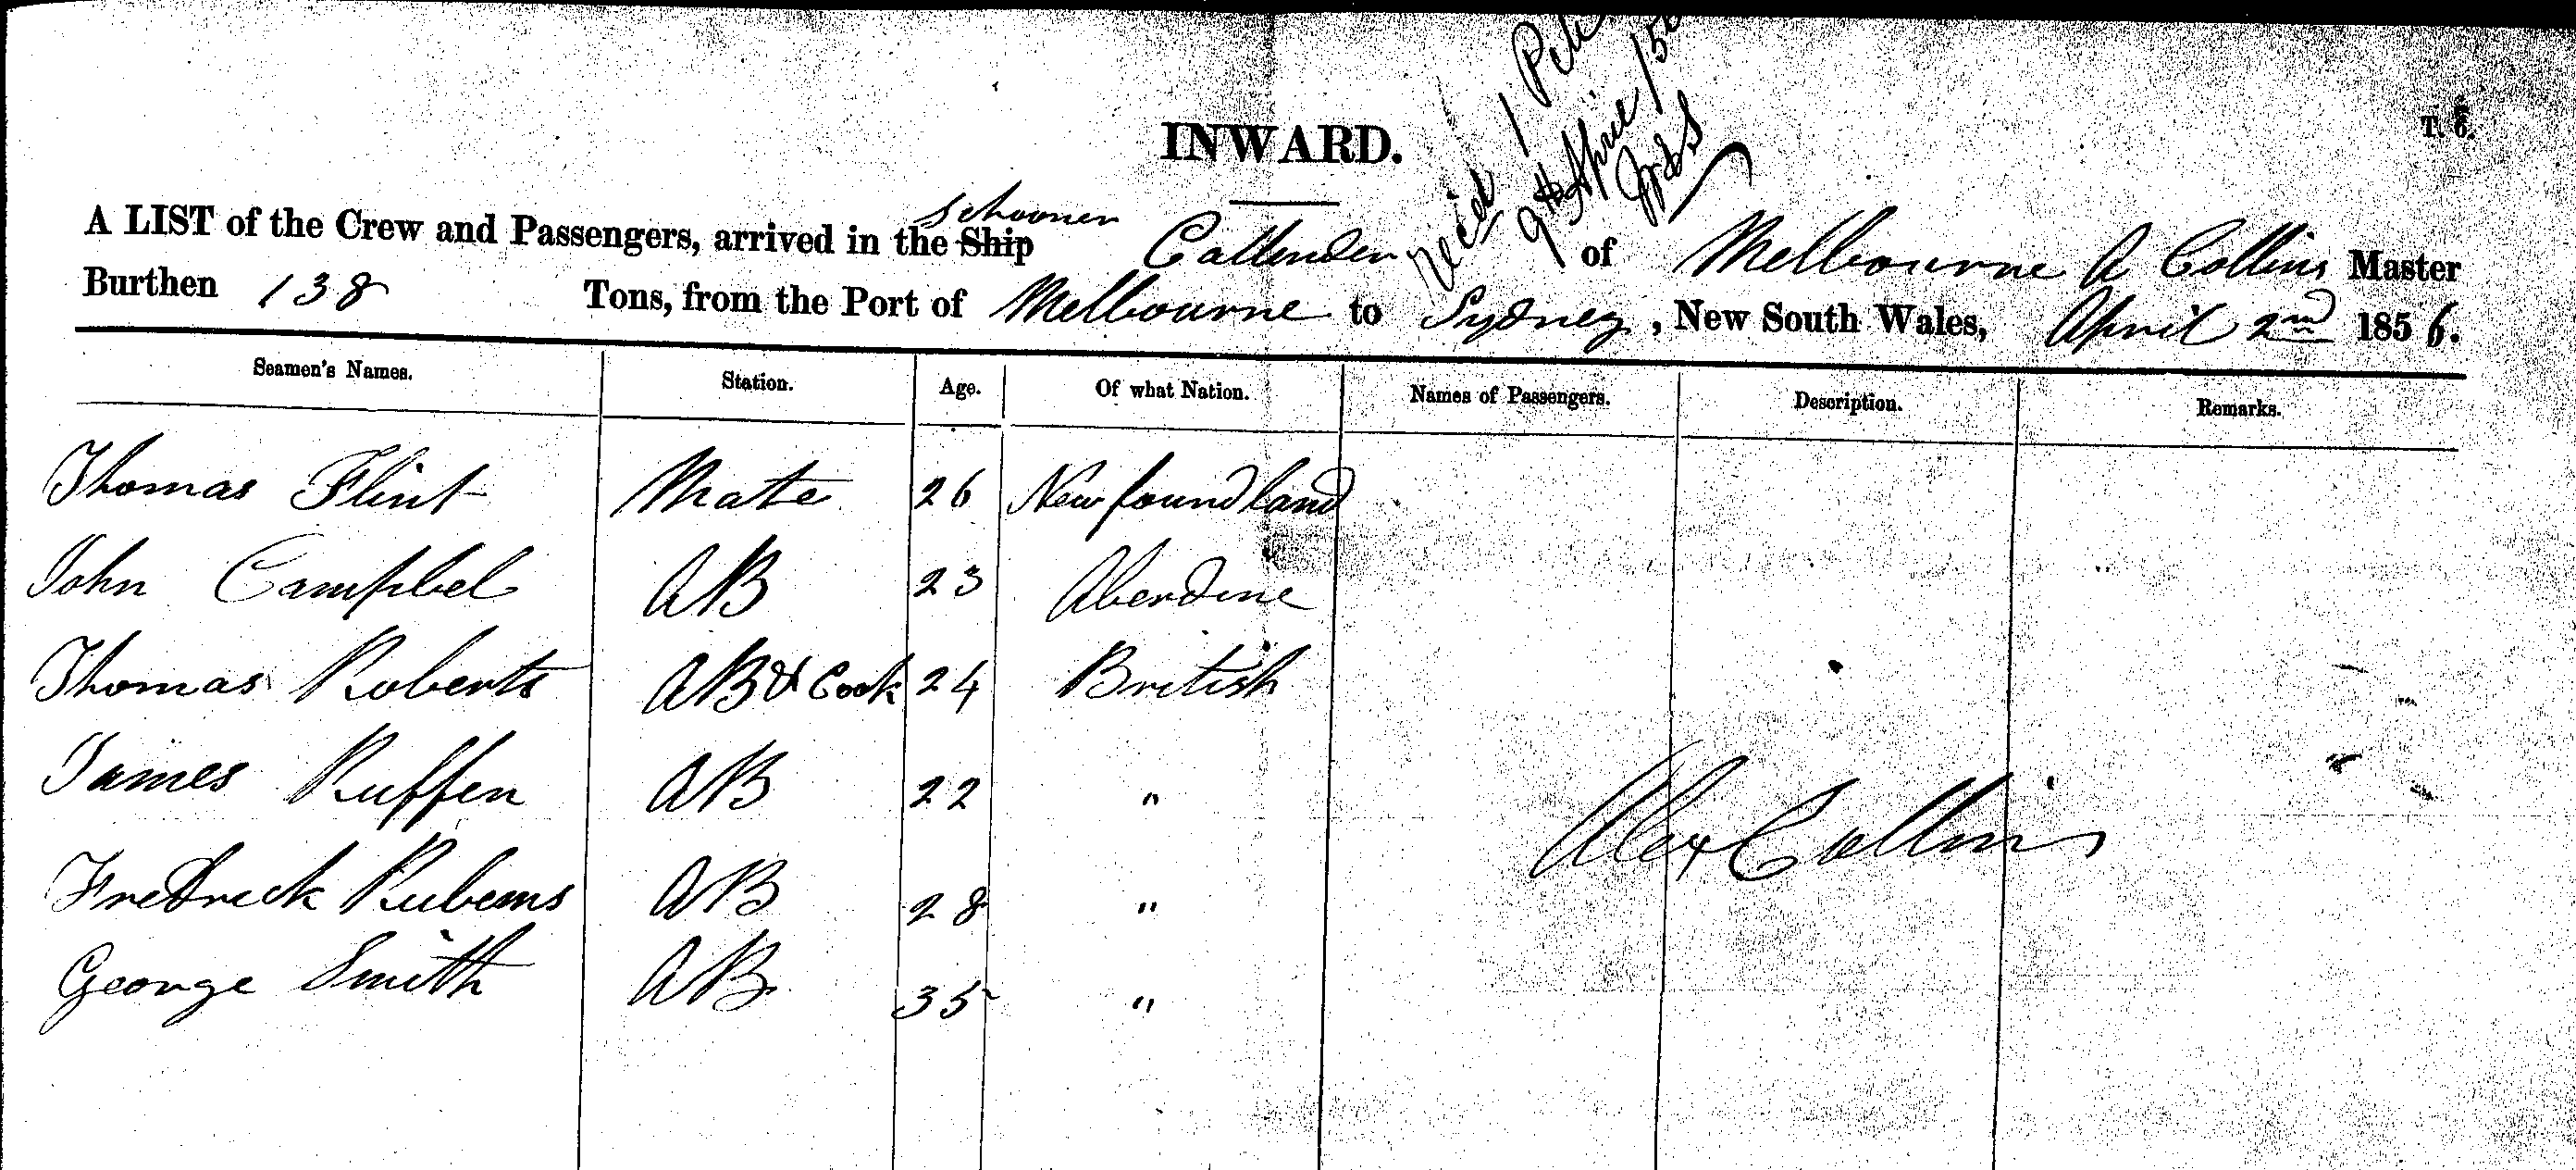 INWARD.
T. 6.
Recd 1
9th April
schooner
A LIST of the Crew and Passengers, arrived in the Ship Callender of Melbourne A Collins Master
Burthen 138 Tons, from the Port of Melbourne to Sydney, New South Wales, April 2nd 1856.
Seamen's Names. Station. Age. Of what Nation. Names of Passengers. Description. Remarks.
Thomas Flint Mate 26 Newfoundland
John Campbel AB 23 Aberdine
Thomas Roberts AB & Cook 24 British
James Ruffen AB 22 "
Fredreck Rubems AB 28 "
George Smith AB 35 "
Alex Collins